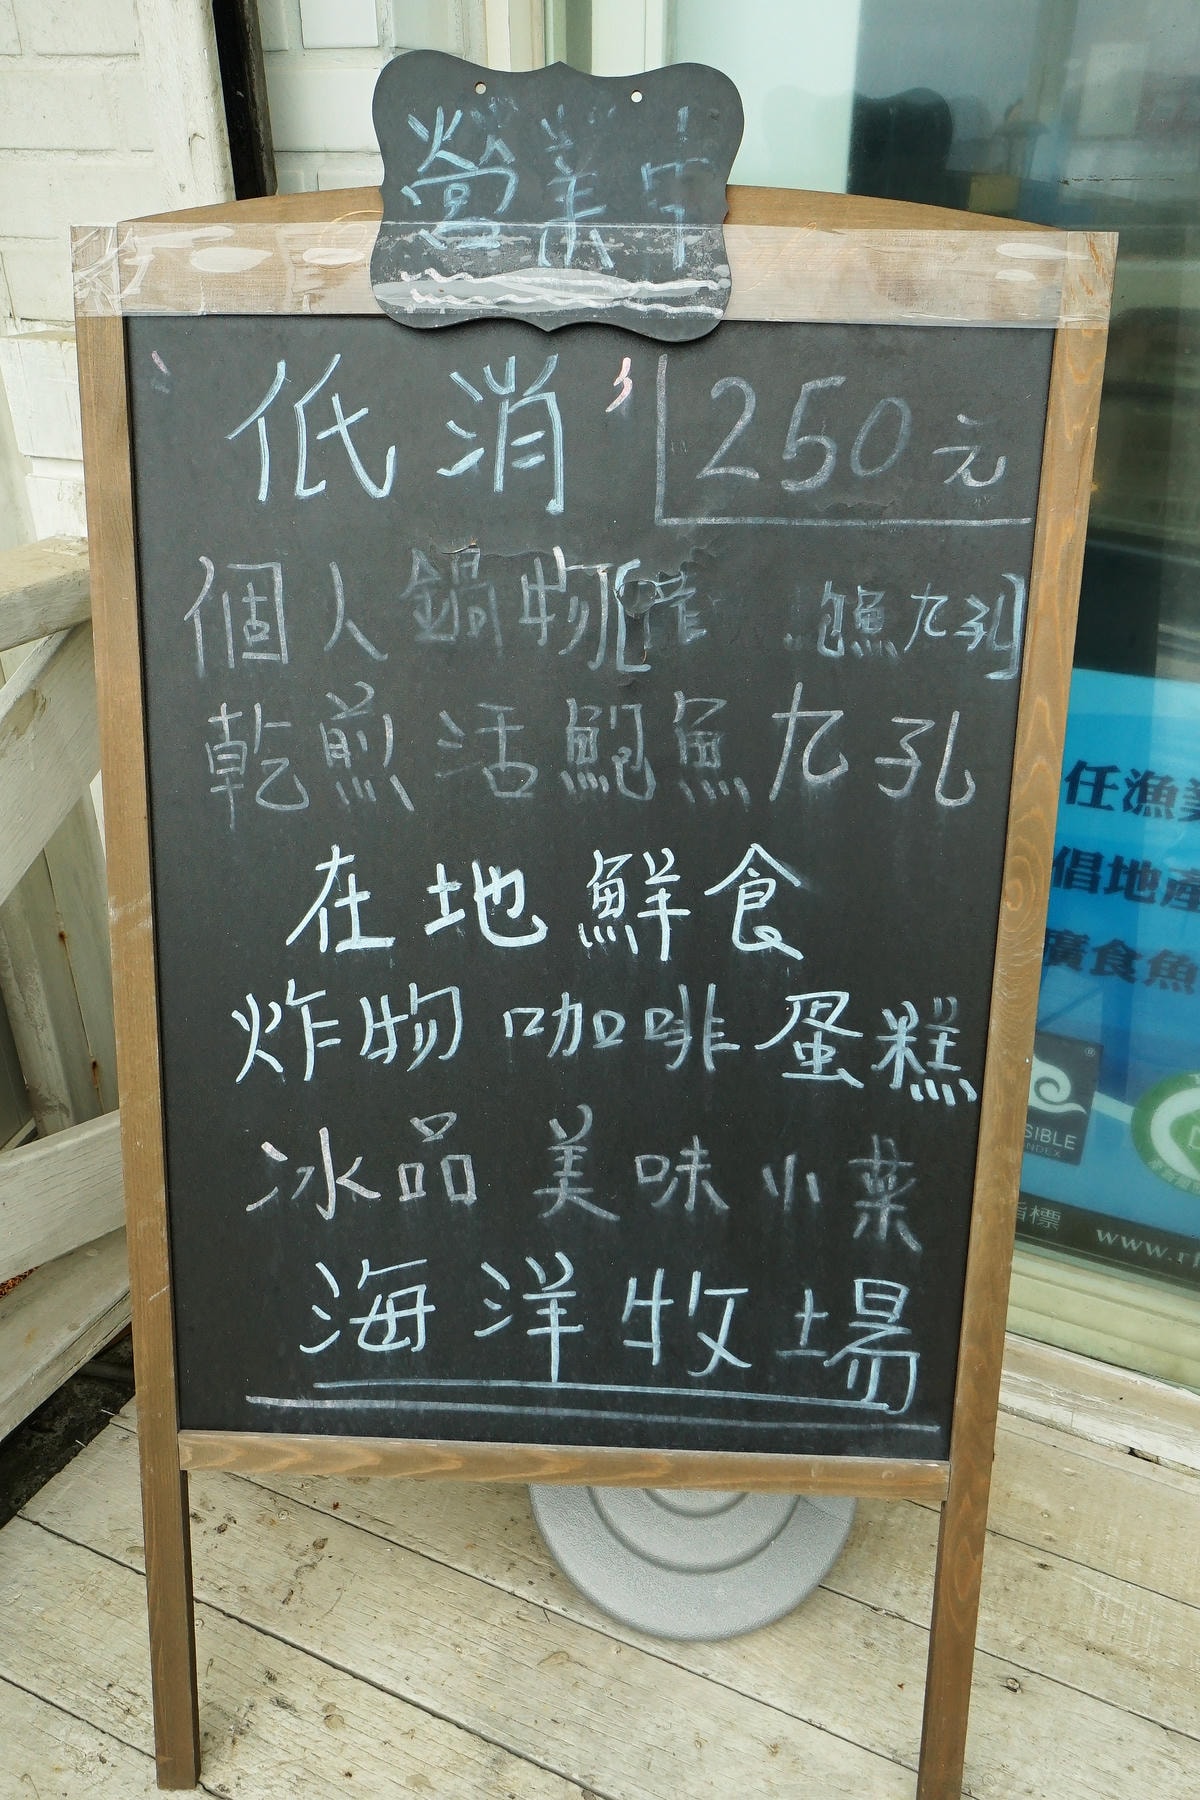 營業中
低消 250元
個人鍋物 [ 鮑魚九孔]
乾煎活鮑魚九孔
在地鮮食
炸物 咖啡 蛋糕
冰品 美味小菜
海洋牧場
任漁業
倡地產
廣食魚
SIBLE
INDEX
指標 www.r